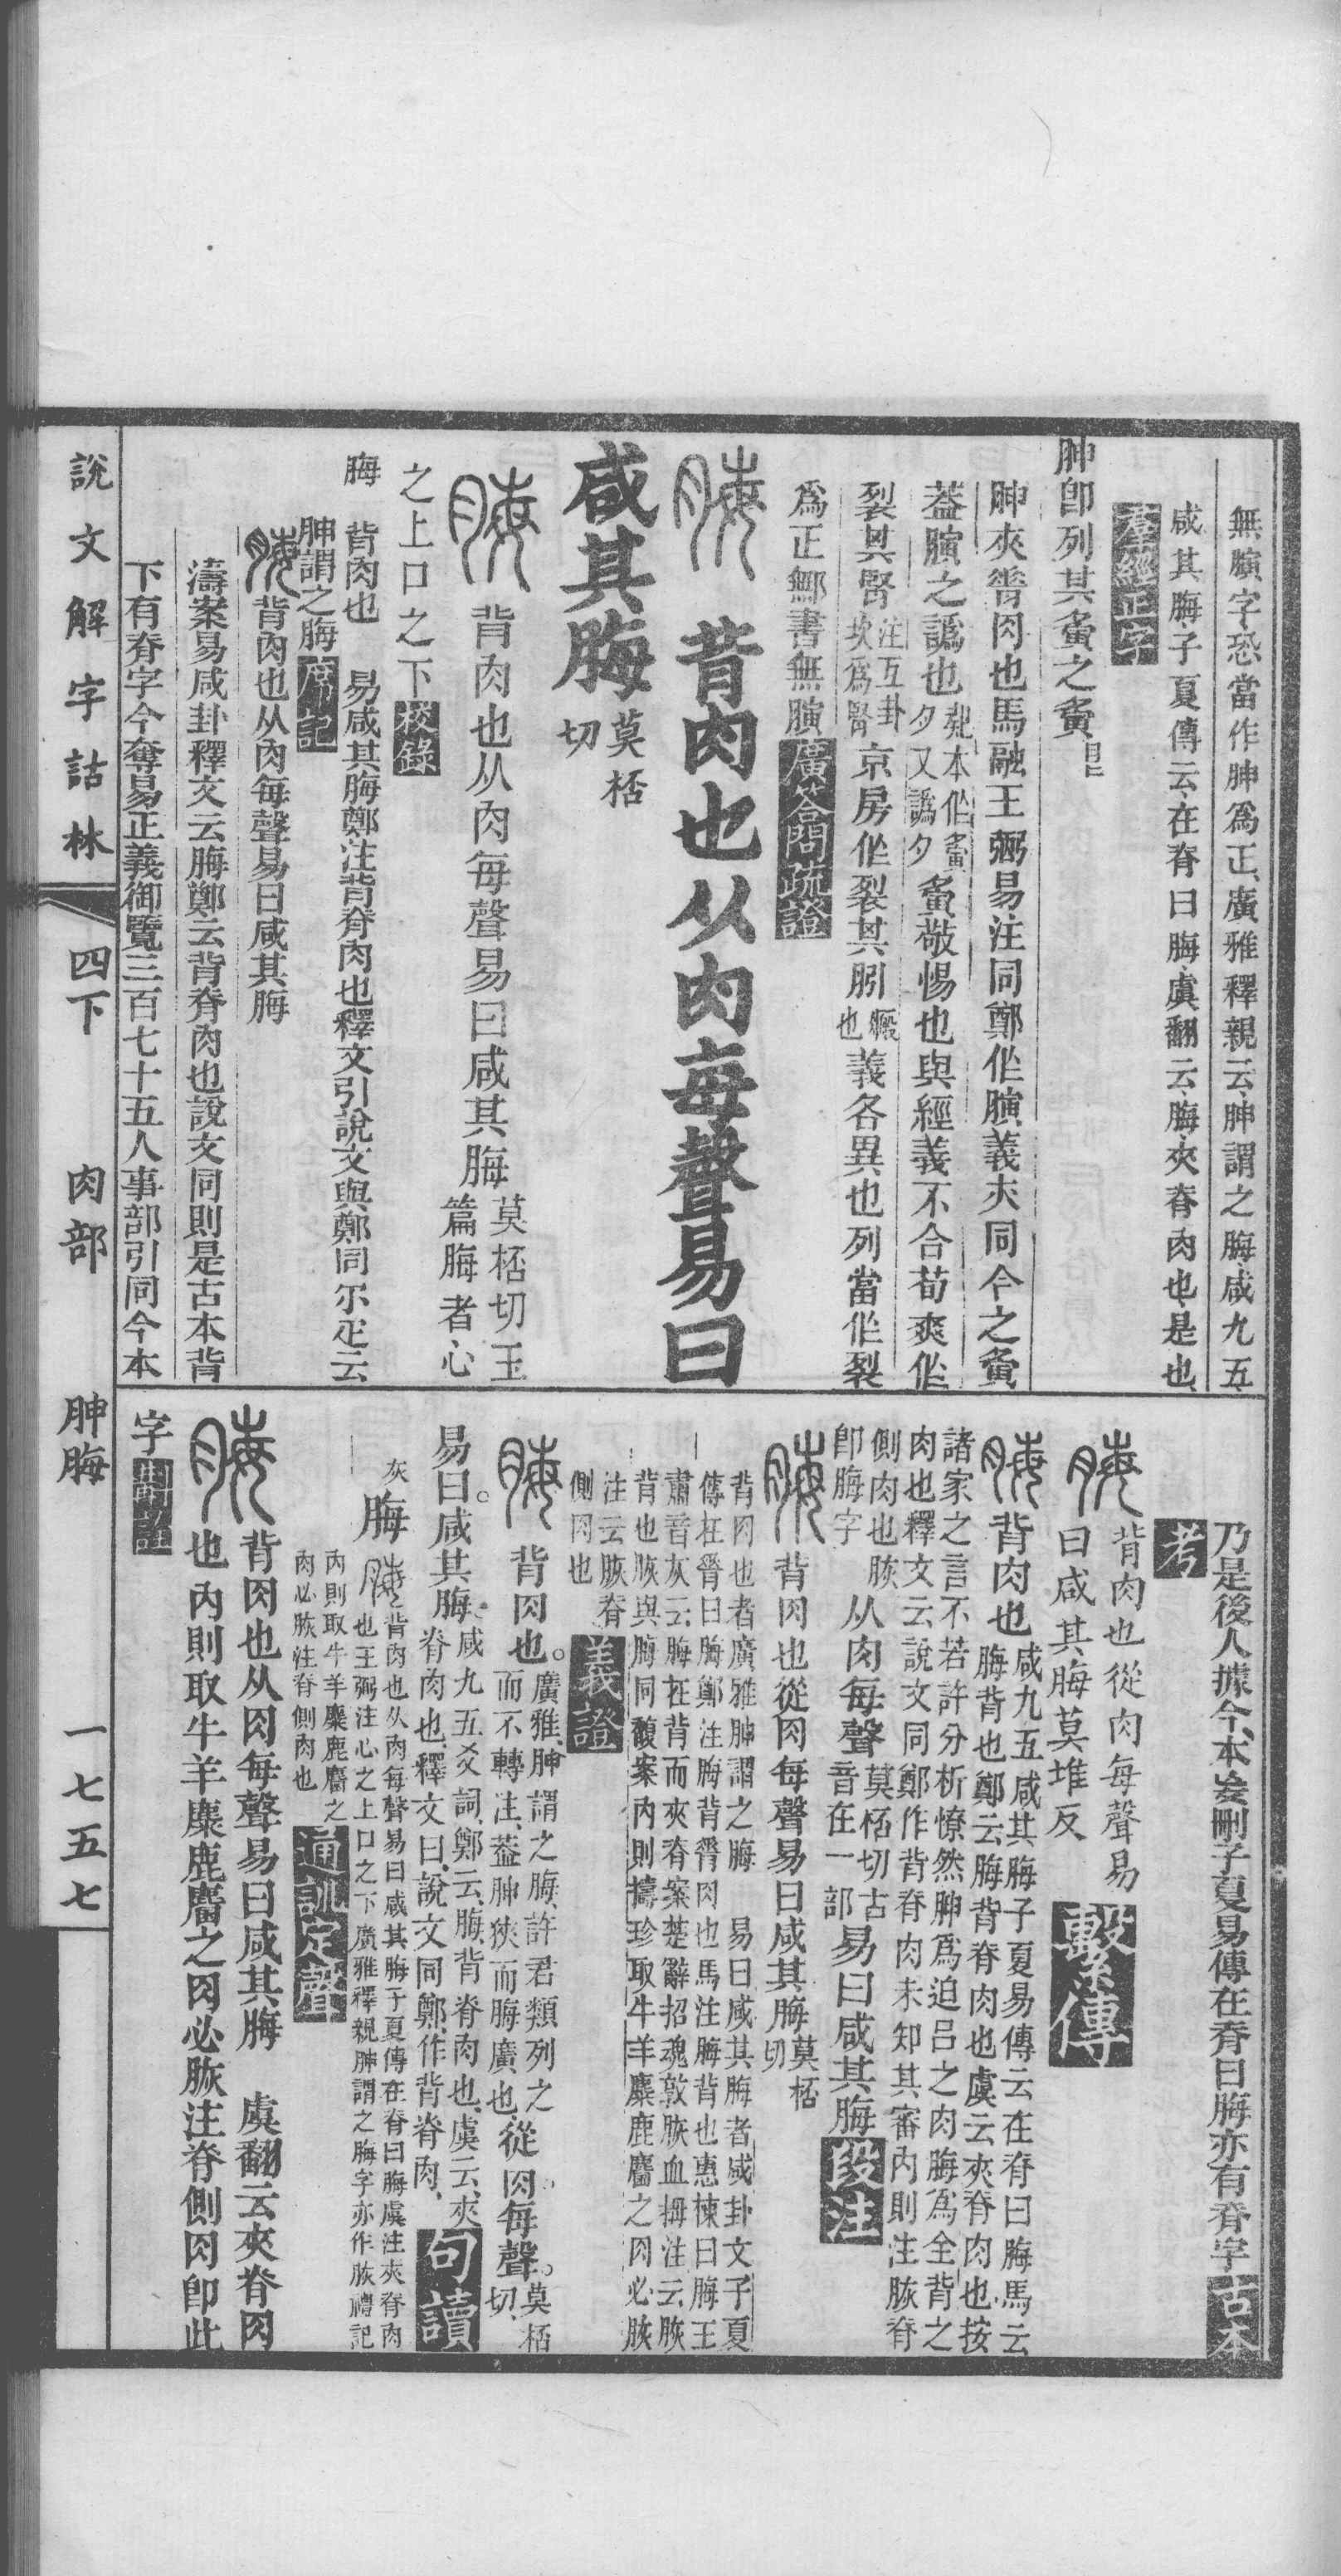 無䐄字恐當作胂爲正廣雅釋親云胂謂之脢咸九五
咸其脢子夏傳云在脊曰脢虞翻云脢夾脊肉也是也
羣經正字
胂卽列其夤之夤
胂夾脊肉也馬融王弼易注同鄭作䐄義亦同今之夤
葢䐄之譌也
夤敬惕也與經義不合荀爽作
裂其腎
注互卦
坎爲腎
京房作裂其䏖
義各異也列當作裂
爲正鄦書無䐄
廣答問疏證
背肉也从肉每聲易曰
咸其脢
莫桮
切
背肉也从肉每聲易曰咸其脢
莫桮切玉
篇脢者心
之上口之下
校錄
脢
背肉也 易咸其脢鄭注背脊肉也釋文引說文與鄭同尒疋云
胂謂之脢
席記
背肉也从肉每聲易曰咸其脢
濤案易咸卦釋文云脢鄭云背脊肉也說文同則是古本背
下有脊字今奪易正義御覽三百七十五人事部引同今本
乃是後人據今本妄刪子夏易傳在脊曰脢亦有脊字
古本
考
背肉也從肉每聲易
曰咸其脢莫堆反
繫傳
背肉也
咸九五咸其脢子夏易傳云在脊曰脢馬云
脢背也鄭云脢背脊肉也虞云夾脊肉也按
諸家之言不若許分析憭然胂爲迫呂之肉脢爲全背之
肉也釋文云說文同鄭作背脊肉未知其審內則注脄脊
側肉也脄
卽脢字
从肉每聲
莫桮切古
音在一部
易曰咸其脢
段注
背肉也從肉每聲易曰咸其脢
莫桮
切
背肉也者廣雅胂謂之脢 易曰咸其脢者咸卦文子夏
傳在脊曰脢鄭注脢背脊肉也馬注脢背也惠棟曰脢王
肅音灰云脢在背而夾脊案楚辭招魂敦脄血拇注云脄
背也脄與脢同馥案內則擣珍取牛羊麋鹿麕之肉必脄
注云脄脊
側肉也
義證
背肉也
廣雅胂謂之脢許君類列之
而不轉注葢胂狹而脢廣也
從肉每聲
莫桮
切
易曰咸其脢
咸九五爻詞鄭云脢背脊肉也虞云夾
脊肉也釋文曰說文同鄭作背脊肉
句讀
灰
脢
背肉也从肉每聲易曰咸其脢子夏傳在脊曰脢虞注夾脊肉
也王弼注心之上口之下廣雅釋親胂謂之脢字亦作脄禮記
內則取牛羊麋鹿麕之
肉必脄注脊側肉也
通訓定聲
背肉也从肉每聲易曰咸其脢 虞翻云夾脊肉
也內則取牛羊麋鹿麕之肉必脄注脊側肉卽此
字
斠詮
說文解字詁林
四下 肉部 胂脢 一七五七